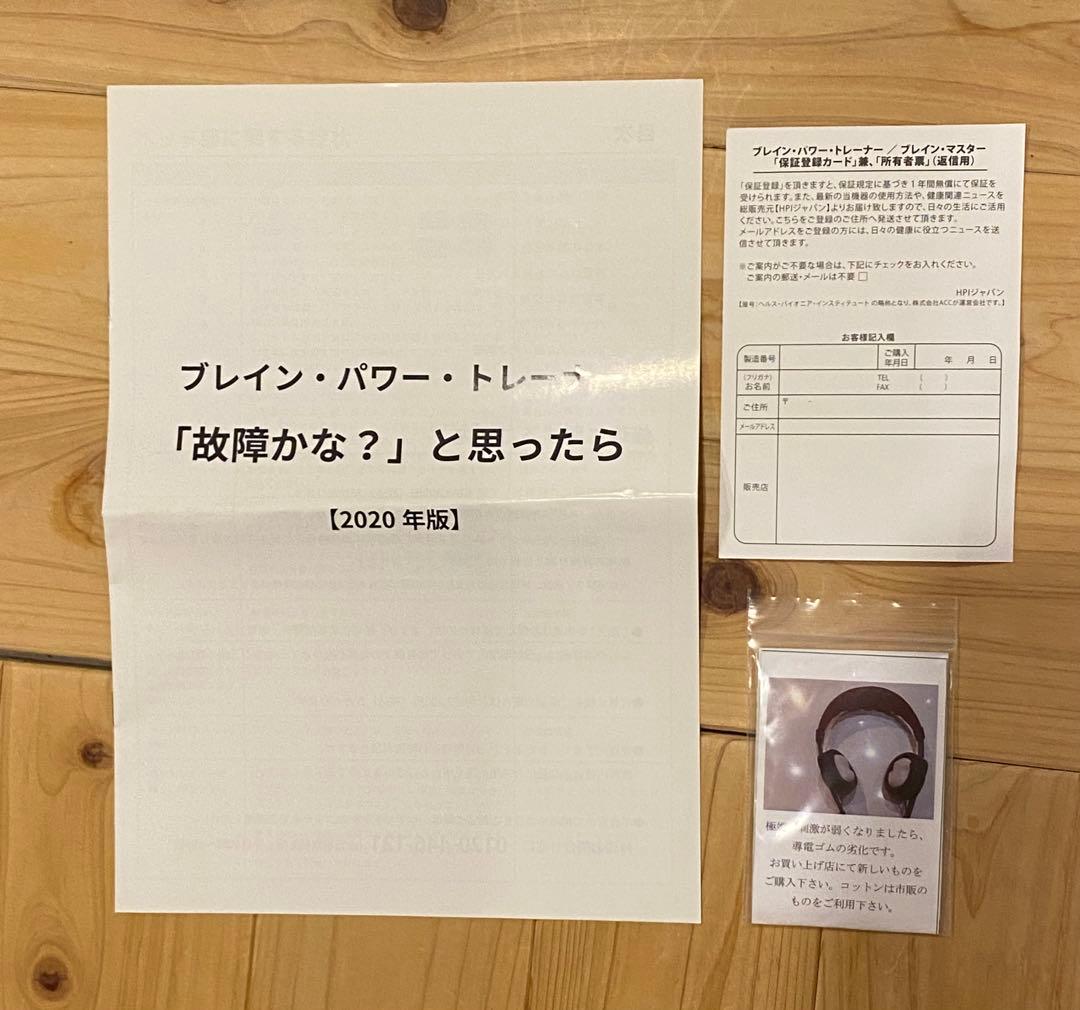 ブレイン・パワー・トレーナ
「故障かな？」と思ったら
【2020 年版】
ブレイン・パワー・トレーナー ／ ブレイン・マスター
「保証登録カード」兼、「所有者票」（返信用）
「保証登録」を頂きますと、保証規定に基づき１年間無償にて保証を
受けられます。また、最新の当機器の使用方法や、健康関連ニュースを
総販売元【HPIジャパン】よりお届け致しますので、日々の生活にご活用
ください。こちらをご登録のご住所へ発送させて頂きます。
メールアドレスをご登録の方には、日々の健康に役立つニュースを送
信させて頂きます。
※ご案内がご不要な場合は、下記にチェックをお入れください。
ご案内の郵送・メールは不要 □
HPIジャパン
【屋号：ヘルス・パイオニア・インスティテュート の略称となり、株式会社ACCが運営会社です。】
お客様記入欄
製造番号
ご購入
年月日
年 月 日
（フリガナ）
お名前
TEL （ ）
FAX （ ）
ご住所
〒 -
メールアドレス
販売店
刺激が弱くなりましたら、
導電ゴムの劣化です。
お買い上げ店にて新しいものを
ご購入下さい。コットンは市販の
ものをご利用下さい。